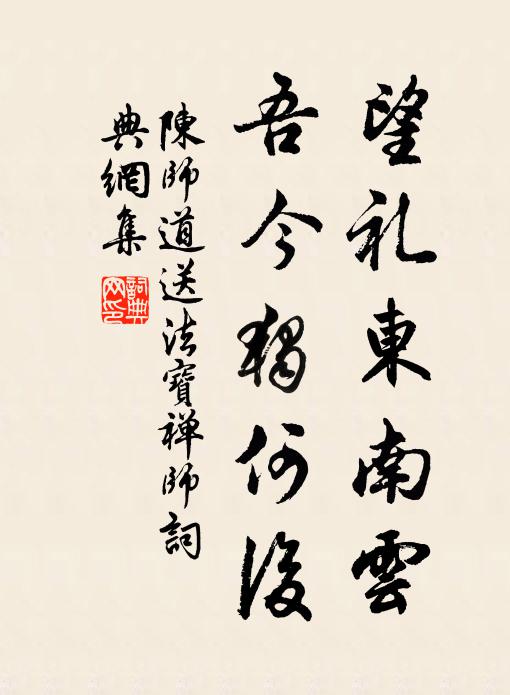 望礼東南雲
吾今獨何後
陳師道送法寶禅師詞
典網集
詞典
网印